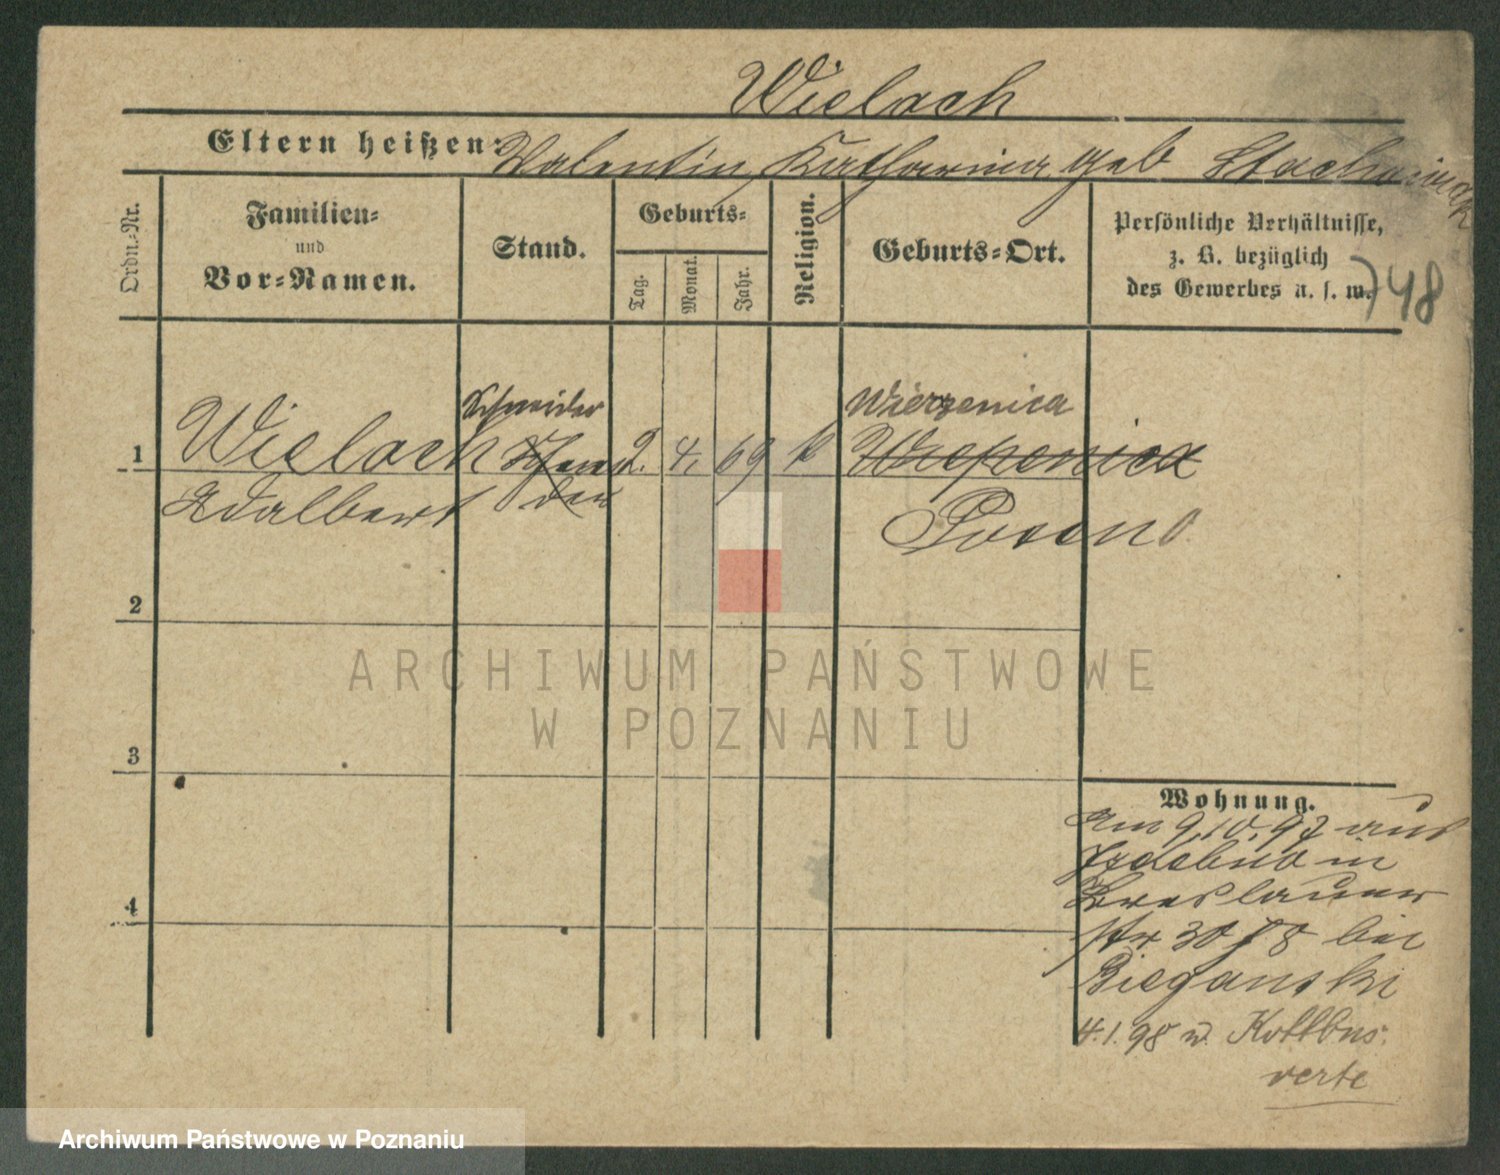 Wielach
Eltern heißen: Valentin, Katharina geb Stachowiak
Ordn.-Nr.
Familien-
und
Vor-Namen.
Stand.
Geburts-
Tag.
Monat.
Jahr.
Religion.
Geburts-Ort.
Persönliche Verhältnisse,
z. B. bezüglich
des Gewerbes u. s. w.
748
Schneider
Wierzenica
1 Wielach 2. 4. 69 k
Adalbert
Posen O.
2
3
4
Wohnung.
am 9.10.97 aus
in
Breslauer
str 30 bei
Bieganski
4.1.98 n. Kottbus.
verte
ARCHIWUM PAŃSTWOWE
W POZNANIU
Archiwum Państwowe w Poznaniu